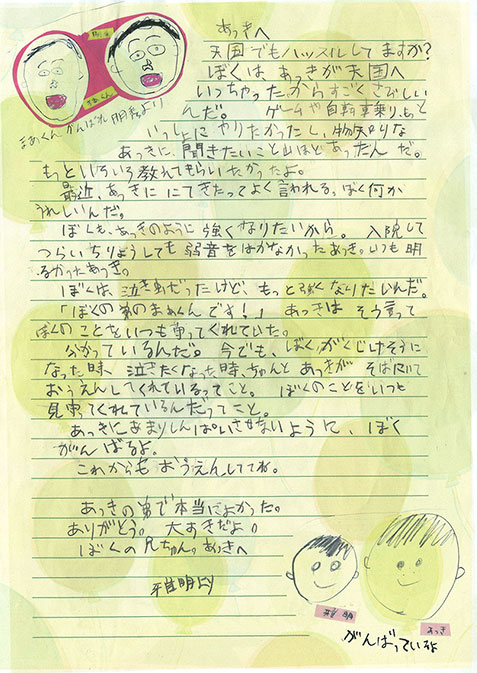 あっきへ
天国でもハッスルしてますか?
ぼくは あっきが天国へ
いっちゃったからすごくさびしい
んだ。 ゲームや自転車乗り、もっと
まぁくん がんばれ 明より
いっしょにやりたかったし、物知りな
あっきに、聞きたいこと山ほどあったんだ。
もっといろいろ教えてもらいたかったよ。
最近、あっきに にてきたってよく言われる。ぼく何か
うれしいんだ。
ぼくも、あっきのように 強くなりたいから。 入院して
つらいちりょうしても 弱音をはかなかったあっき。いつも明
るかったあっき。
ぼくは、泣き虫だったけど、もっと強くなりたいんだ。
「ぼくの弟のまぁくんです!」 あっきは そう言って
ぼくのことをいつも守ってくれていた。
分かっているんだ。今でも、ぼくがくじけそうに
なった時、泣きたくなった時、ちゃんと あっきが そばにいて
おうえんしてくれているってこと。 ぼくのことをいつも
見守ってくれているんだってこと。
あっきにあまりしんぱいさせないように、ぼく
がんばるよ。
これからもおうえんしててね。
あっきの弟で本当によかった。
ありがとう。 大すきだよ。
ぼくの兄ちゃん。あっきへ
雅明より
雅明
あっき
がんばっているよ